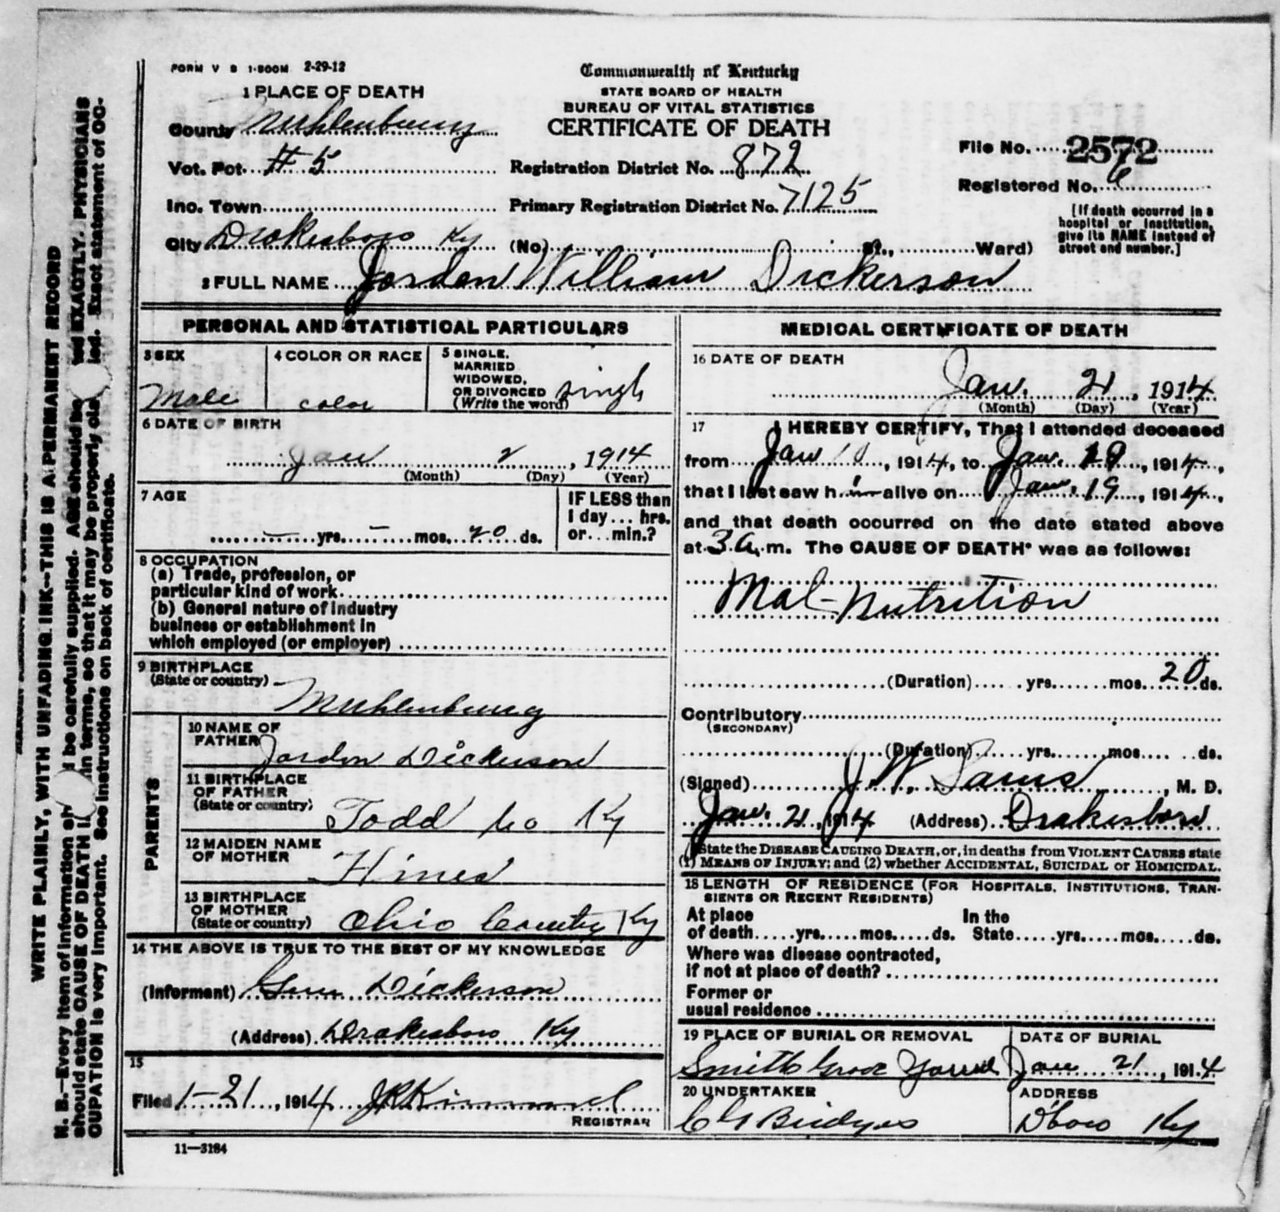 FORM V S 1-500M 2-29-12
Commonwealth of Kentucky
STATE BOARD OF HEALTH
BUREAU OF VITAL STATISTICS
CERTIFICATE OF DEATH
1 PLACE OF DEATH
County Muhlenburg
Vot. Pct. #5
Inc. Town
City Drakesboro Ky (No. St., Ward)
Registration District No. 872
Primary Registration District No. 7125
File No. 2572
Registered No. 6
[If death occurred in a
hospital or institution,
give its NAME instead of
street and number.]
2 FULL NAME Jordon William Dickerson
PERSONAL AND STATISTICAL PARTICULARS
3 SEX
Male
4 COLOR OR RACE
color
5 SINGLE,
MARRIED
WIDOWED,
OR DIVORCED
(Write the word)
singl
6 DATE OF BIRTH
Jan 2, 1914
(Month) (Day) (Year)
7 AGE
- yrs. - mos. 20 ds.
IF LESS than
1 day ... hrs.
or ... min.?
8 OCCUPATION
(a) Trade, profession, or
particular kind of work
(b) General nature of industry
business or establishment in
which employed (or employer)
9 BIRTHPLACE
(State or country)
Muhlenburg
PARENTS
10 NAME OF
FATHER Jordon Dickerson
11 BIRTHPLACE
OF FATHER
(State or country) Todd Co Ky
12 MAIDEN NAME
OF MOTHER Hines
13 BIRTHPLACE
OF MOTHER
(State or country) Ohio County Ky
14 THE ABOVE IS TRUE TO THE BEST OF MY KNOWLEDGE
(Informant) Dickerson
(Address) Drakesboro Ky
15
Filed 1-21, 1914 JR Kimmel
REGISTRAR
11-3184
MEDICAL CERTIFICATE OF DEATH
16 DATE OF DEATH
Jan. 21, 1914
(Month) (Day) (Year)
17 I HEREBY CERTIFY, That I attended deceased
from Jan, 1914, to Jan. 19, 1914,
that I last saw him alive on Jan. 19, 1914,
and that death occurred on the date stated above
at 3 a.m. The CAUSE OF DEATH* was as follows:
Mal-nutrition
(Duration) yrs. mos. 20 ds.
Contributory
(SECONDARY)
(Duration) yrs. mos. ds.
(Signed) J W. , M. D.
Jan. 21, 1914 (Address) Drakesboro
State the DISEASE CAUSING DEATH, or, in deaths from VIOLENT CAUSES state
(1) MEANS OF INJURY; and (2) whether ACCIDENTAL, SUICIDAL or HOMICIDAL.
18 LENGTH OF RESIDENCE (FOR HOSPITALS, INSTITUTIONS, TRAN-
SIENTS OR RECENT RESIDENTS)
At place In the
of death yrs. mos. ds. State yrs. mos. ds.
Where was disease contracted,
if not at place of death?
Former or
usual residence
19 PLACE OF BURIAL OR REMOVAL
Smith Grove
DATE OF BURIAL
Jan 21, 1914
20 UNDERTAKER
ADDRESS
D'boro Ky
WRITE PLAINLY, WITH UNFADING INK--THIS IS A PERMANENT RECORD
N. B.--Every item of information sh d be carefully supplied. AGE should be ed EXACTLY. PHYSICIANS
should state CAUSE OF DEATH in terms, so that it may be properly clas ied. Exact statement of OC-
CUPATION is very important. See instructions on back of certificate.